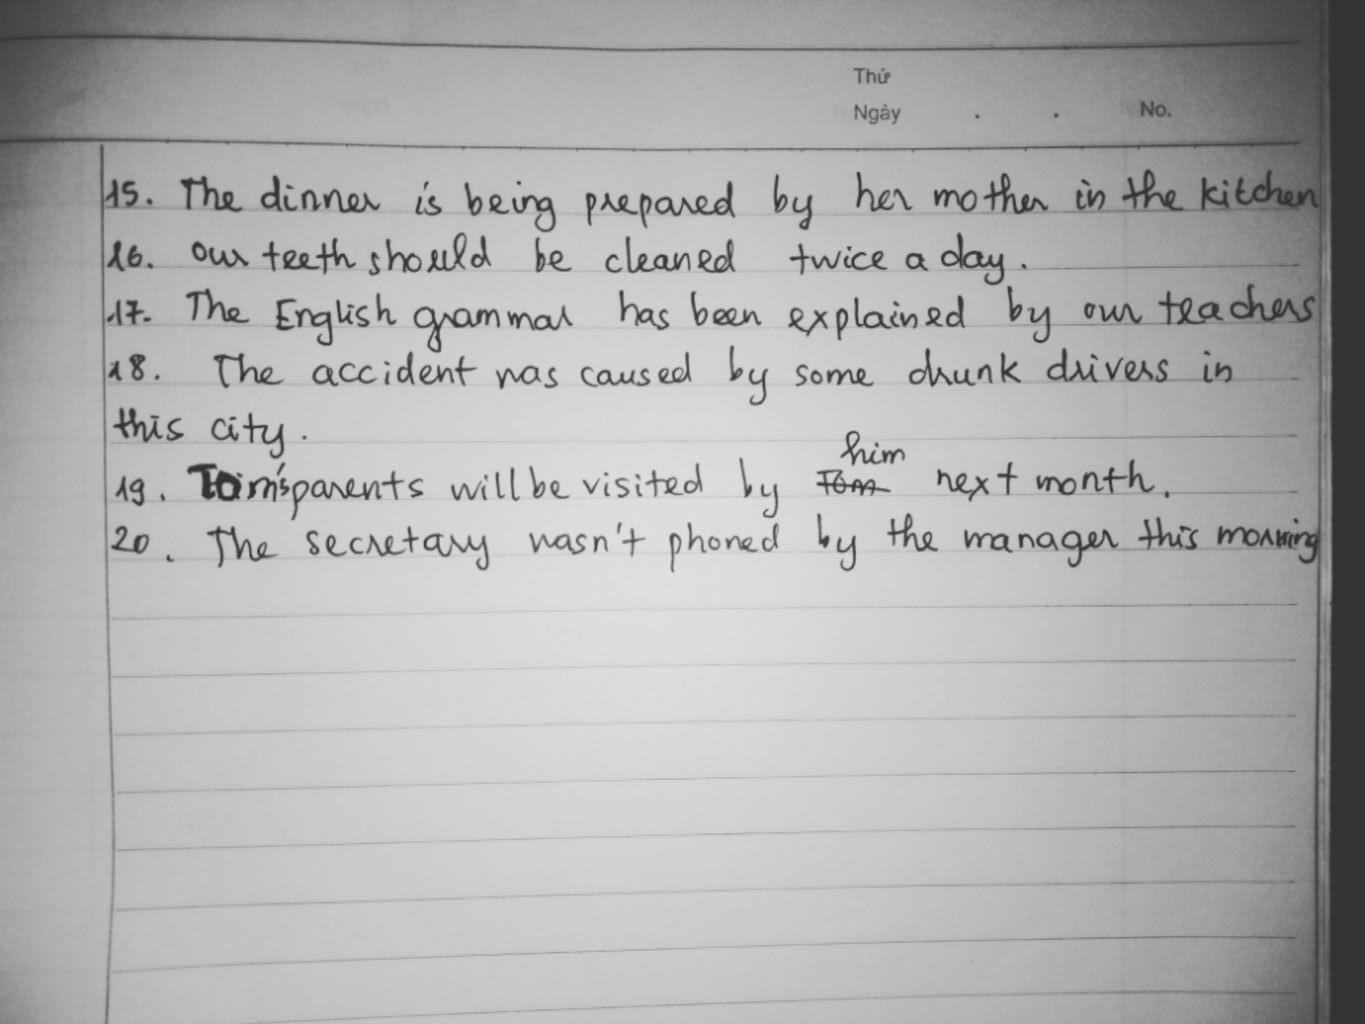 Thứ
Ngày . . No.
15. The dinner is being prepared by her mother in the kitchen
16. our teeth should be cleaned twice a day.
17. The English grammar has been explained by our teachers
18. The accident was caused by some drunk drivers in
this city.
him
19. Tom's parents will be visited by Tom next month.
20. The secretary wasn't phoned by the manager this morning